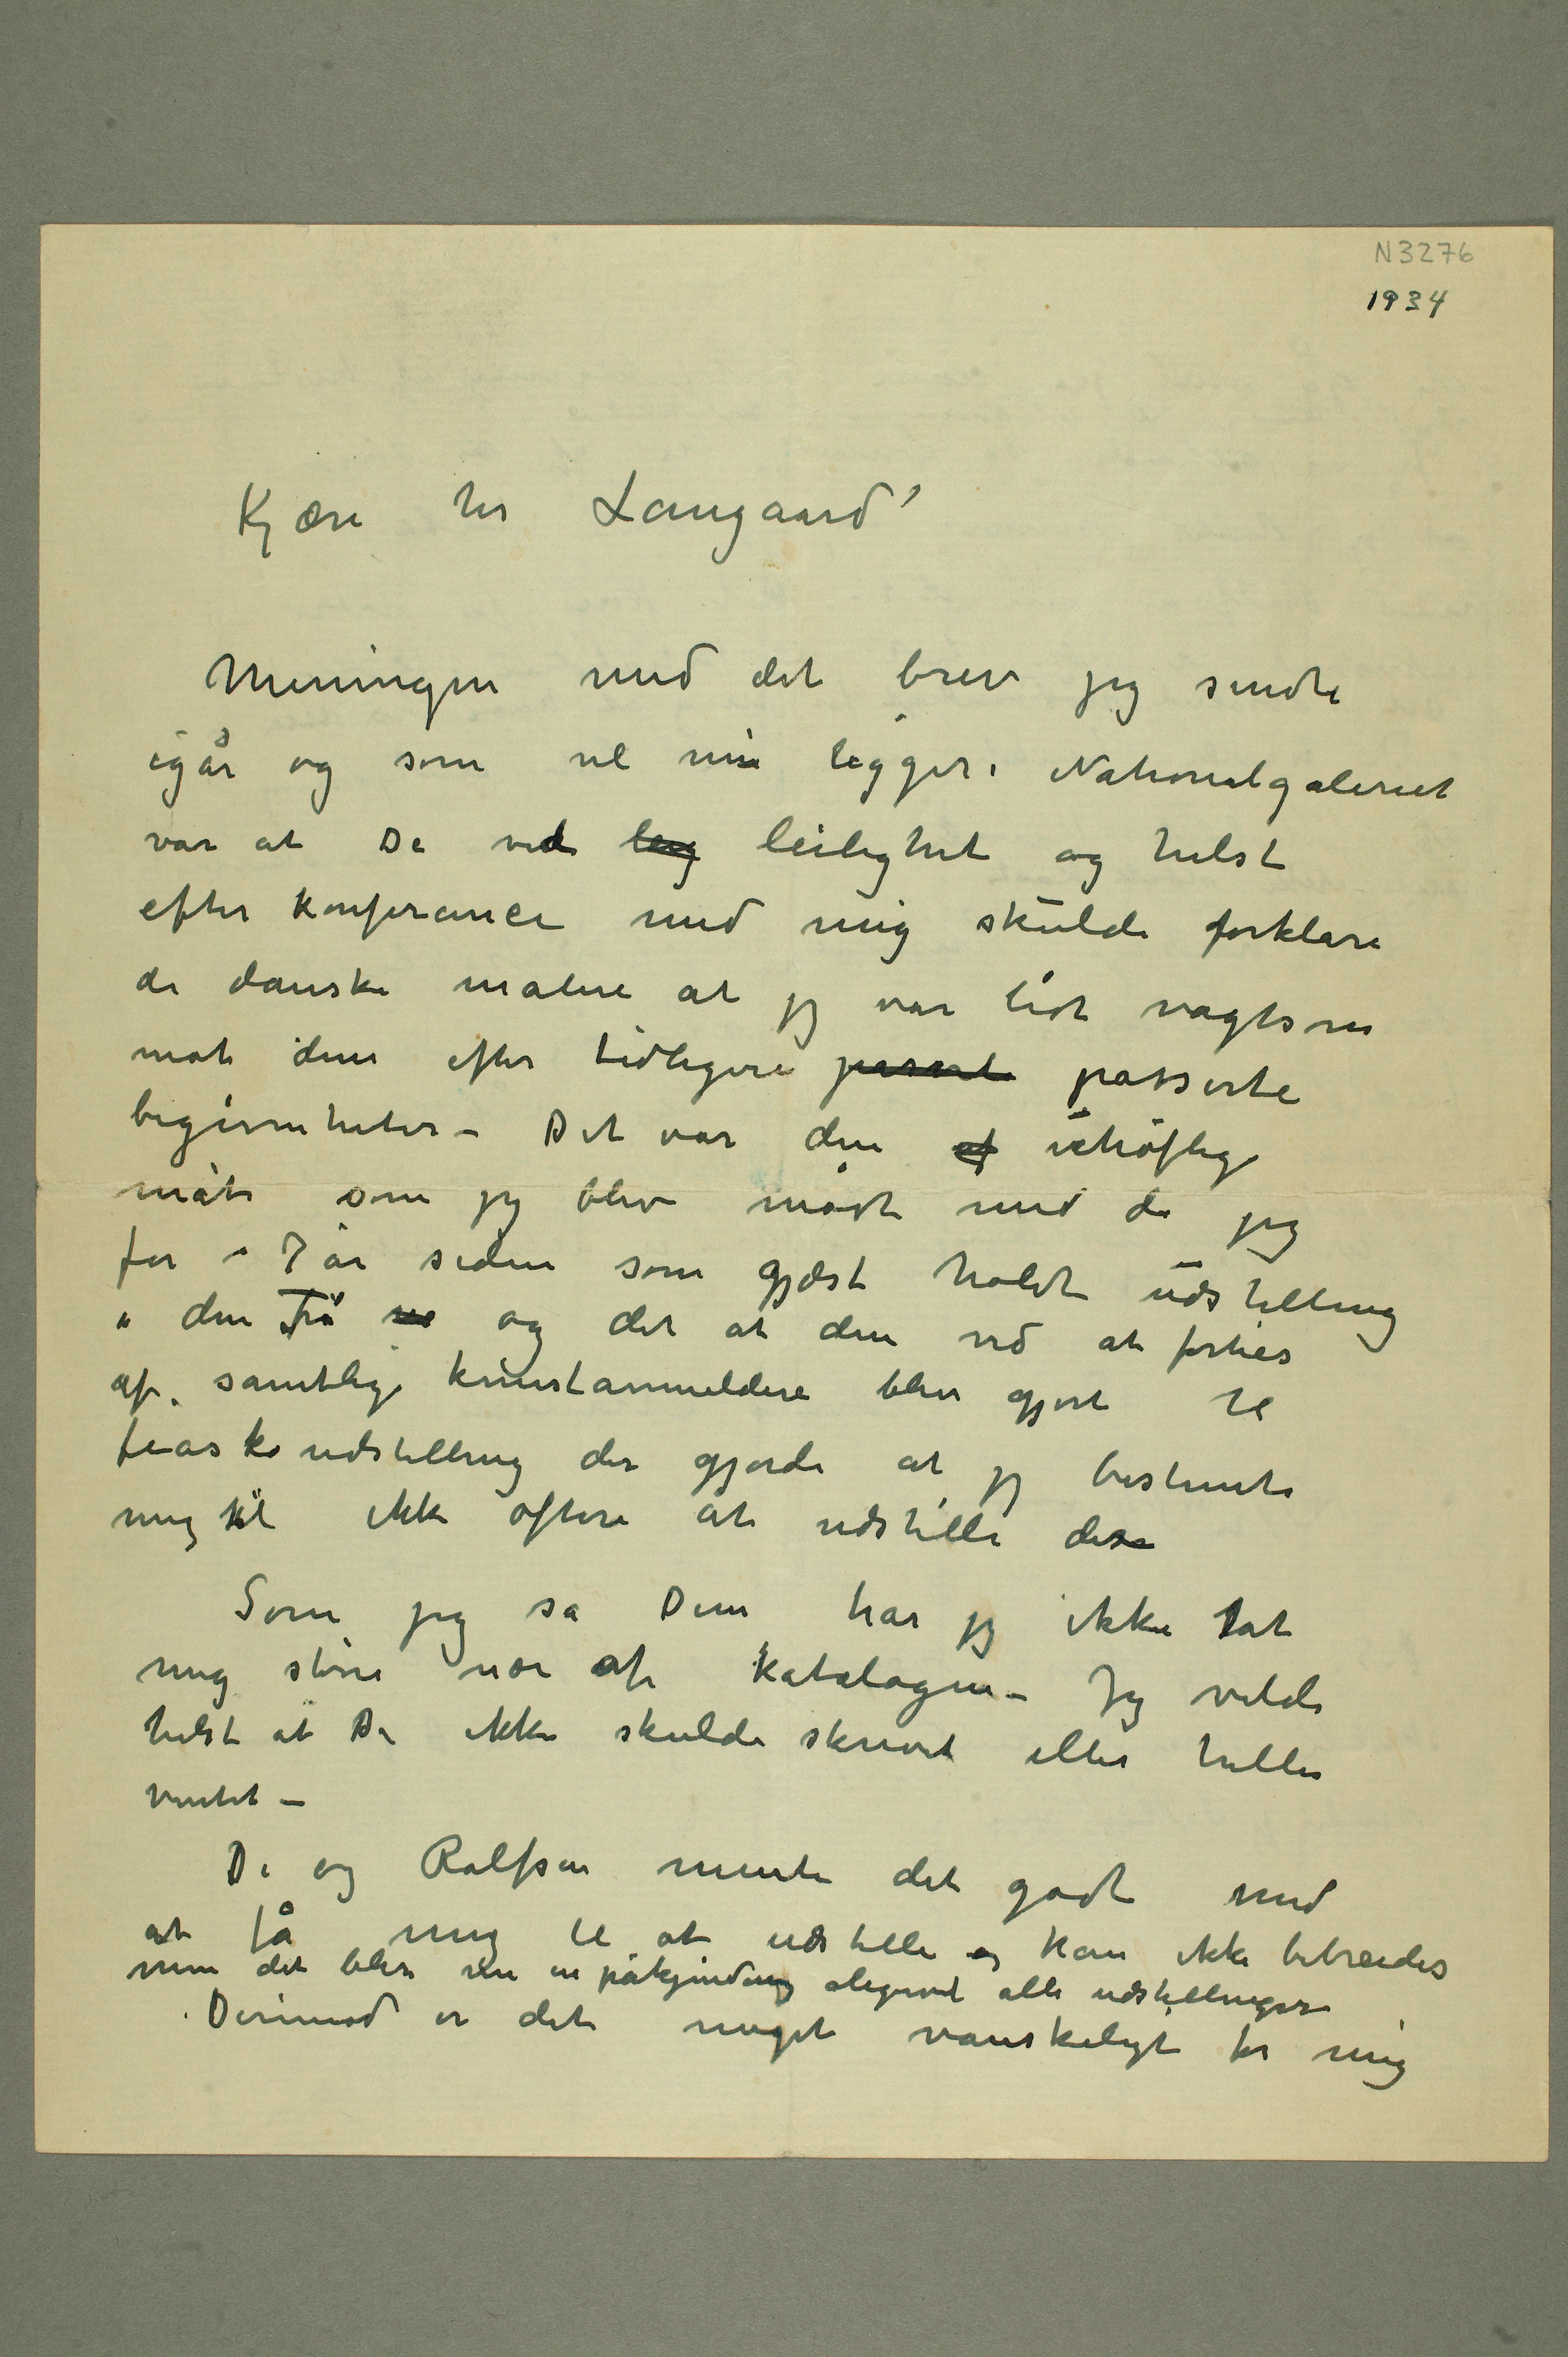 N3276
1934
Kjære hr Langaard'
Meningen med det brev jeg sendte
igår og som vel nu ligger i Nationalgaleriet
var at De ved leilighet og helst
efter konferance med mig skulde forklare
de danske malere at jeg var lidt vagtsom
mot dem efter tidligere passerte
begivenheter – Det var den uhøflige
måte som jeg blev mødt med da jeg
for 7 år siden som gjæst holdt udstilling
i den Fri og det at den ved at forties
af samtlige kunstanmeldere blev gjort til
fiaskoudstilling der gjorde at jeg bestemte
mig til ikke oftere at udstille der
Som jeg sa Dem har jeg ikke tat
mig større nær af katalogen – Jeg vilde
helst at De ikke skulde skrevet eller heller
ventet –
De og Rolfsen mente det godt med
at få mig til at udstille og kan ikke bebreides
men det blev en påkjending alligevel alle udstillinger
Derimod er det meget vanskeligt for mig